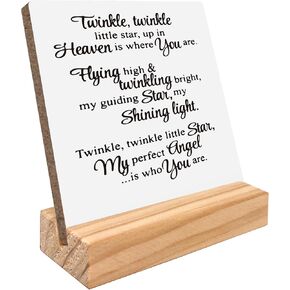 Twinkle, twinkle
little star, up in
Heaven is where You are.
Flying high &
twinkling bright,
my guiding Star, my
Shining light.
Twinkle, twinkle little Star,
My perfect Angel
...is who You are.